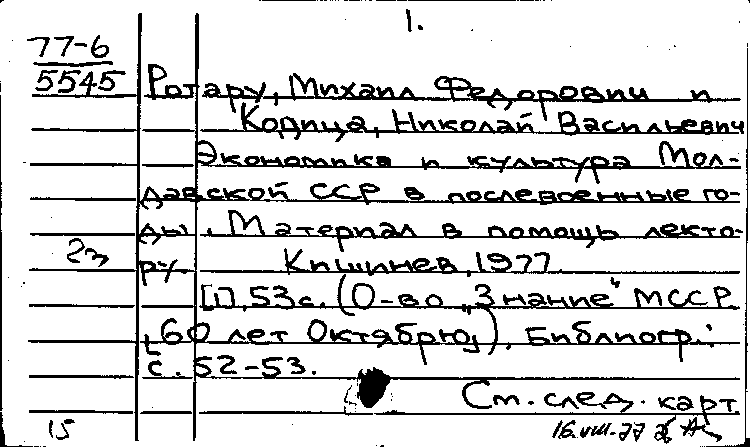 1.
77-6
5545
Ротару, Михаил Федорович и
Кодица, Николай Васильевич
Экономика и культура Мол-
давской ССР в послевоенные го-
ды. Материал в помощь лекто-
ру. Кишинев, 1977.
[1], 53 с. (О-во „Знание" МССР
„60 лет Октябрю„). Библиогр.:
с. 52-53.
См. след. карт
15
16.VIII-77